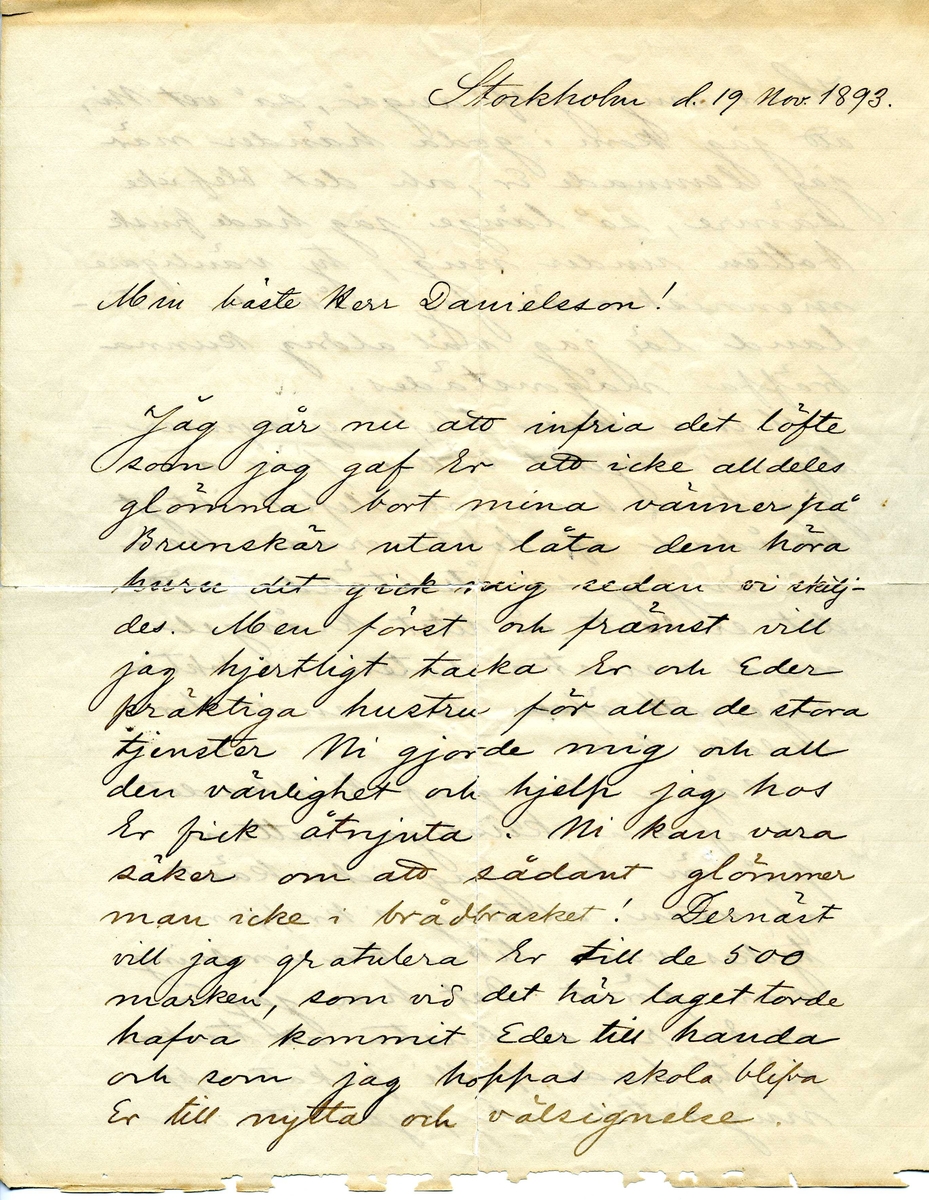 Stockholm d. 19 Nov. 1893.
Min bäste Herr Danielsson!
Jag går nu att infria det löfte
som jag gaf Er att icke alldeles
glömma bort mina vänner på
Brunskär utan låta dem höra
huru det gick mig sedan vi skilj-
des. Men först och främst vill
jag hjertligt tacka Er och Eder
präktiga hustru för alla de stora
tjenster Ni gjorde mig och all
den vänlighet och hjelp jag hos
Er fick åtnjuta. Ni kan vara
säker om att sådant glömmer
man icke i brådbrasket! Dernäst
vill jag gratulera Er till de 500
marken, som vid det här laget torde
hafva kommit Eder till handa
och som jag hoppas skola blifva
Er till nytta och välsignelse.